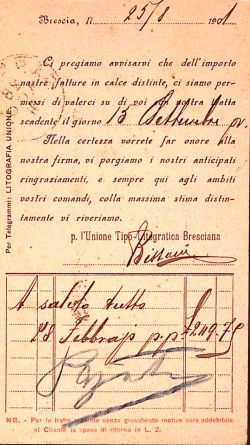 Brescia, li 25/8 1901
Ci pregiamo avvisarvi che dell'importo
nostre fatture in calce distinte, ci siamo per-
messi di valerci su di voi con nostra tratta
scadente il giorno 15 Settembre pv.
Nella certezza vorrete far onore alla
nostra firma, vi porgiamo i nostri anticipati
ringraziamenti, e sempre qui agli ambiti
vostri comandi, colla massima stima distin-
tamente vi riveriamo.
p. l'Unione Tipo-Litografica Bresciana
Per Telegrammi: LITOGRAFIA UNIONE.
A saldo tutto
28 Febbraio p.p. £ 249.75
NB. - Per le tratte ritornate senza giustificato motivo sarà addebitata
al Cliente la spesa di ritorno in L. 2.